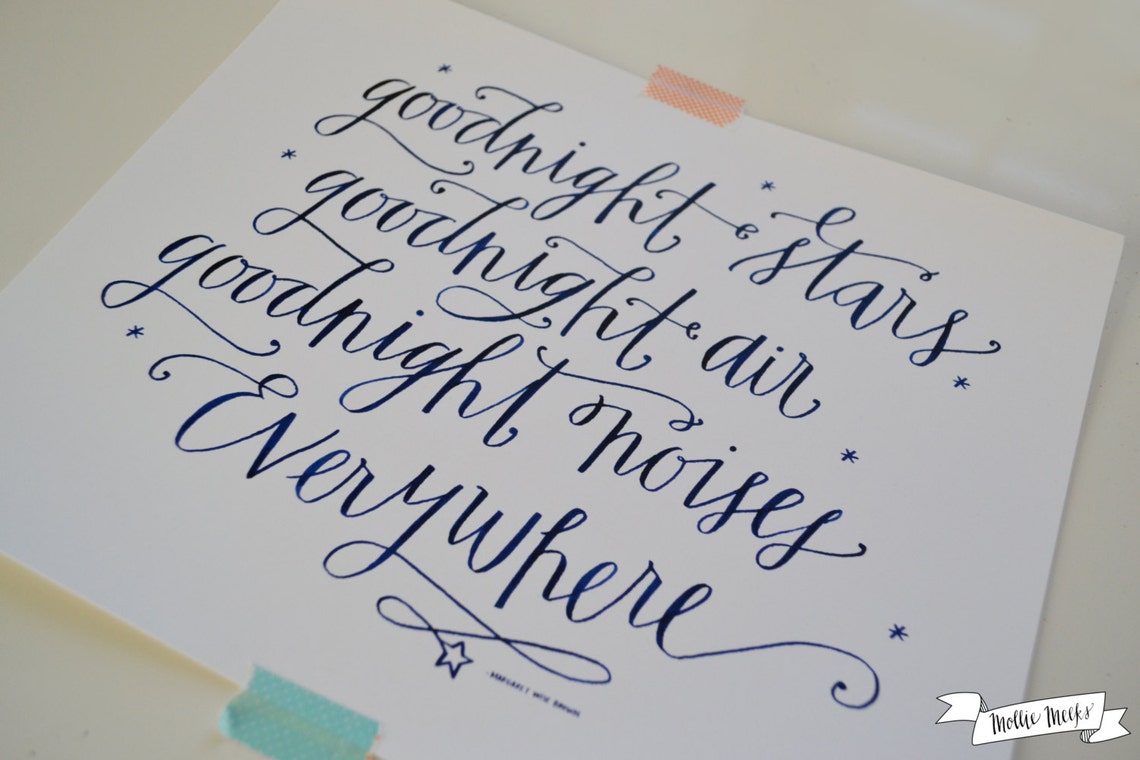 goodnight stars
goodnight air
goodnight noises
Everywhere
-MARGARET WISE BROWN
Mollie Meeks